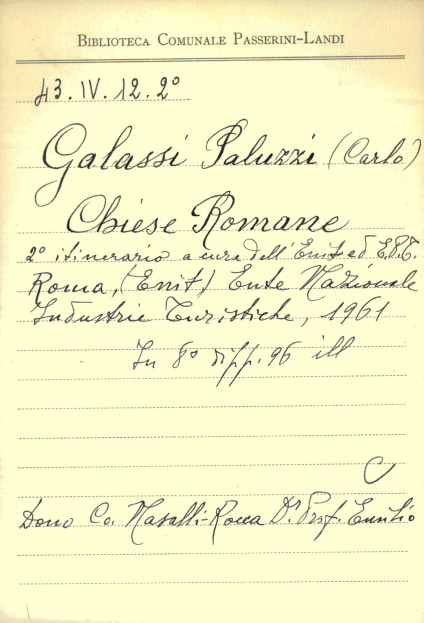 BIBLIOTECA COMUNALE PASSERINI-LANDI
43.IV.12.2°
Galassi Paluzzi (Carlo)
Chiese Romane
2° itinerario a cura dell'Enit ed E.P.T.
Roma, (Enit) Ente Nazionale
Industrie Turistiche, 1961
In 8° di pp. 96 ill
C
Dono Co. Nasalli-Rocca Dr Prof. Emilio